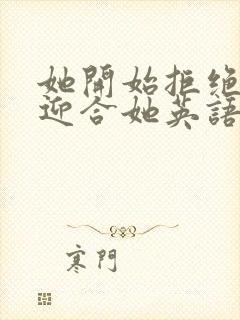 她開始拒絕
迎合她英語
寒門